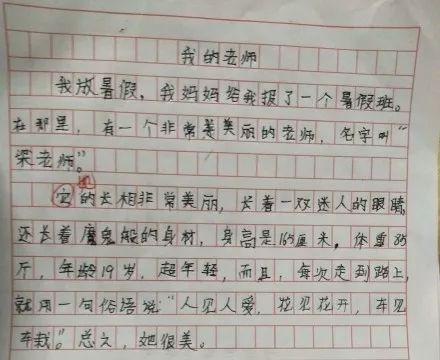 我的老师
我放暑假，我妈妈给我报了一个暑假班。
在那里，有一个非常美丽的老师，名字叫“
梁老师”。
她
它的长相非常美丽，长着一双迷人的眼睛，
还长着魔鬼般的身材，身高是165厘米，体重85
斤，年龄19岁，超年轻，而且，每次走到路上，
就用一句俗语说“人见人爱，花见花开，车见
车栽”。总之，她很美。